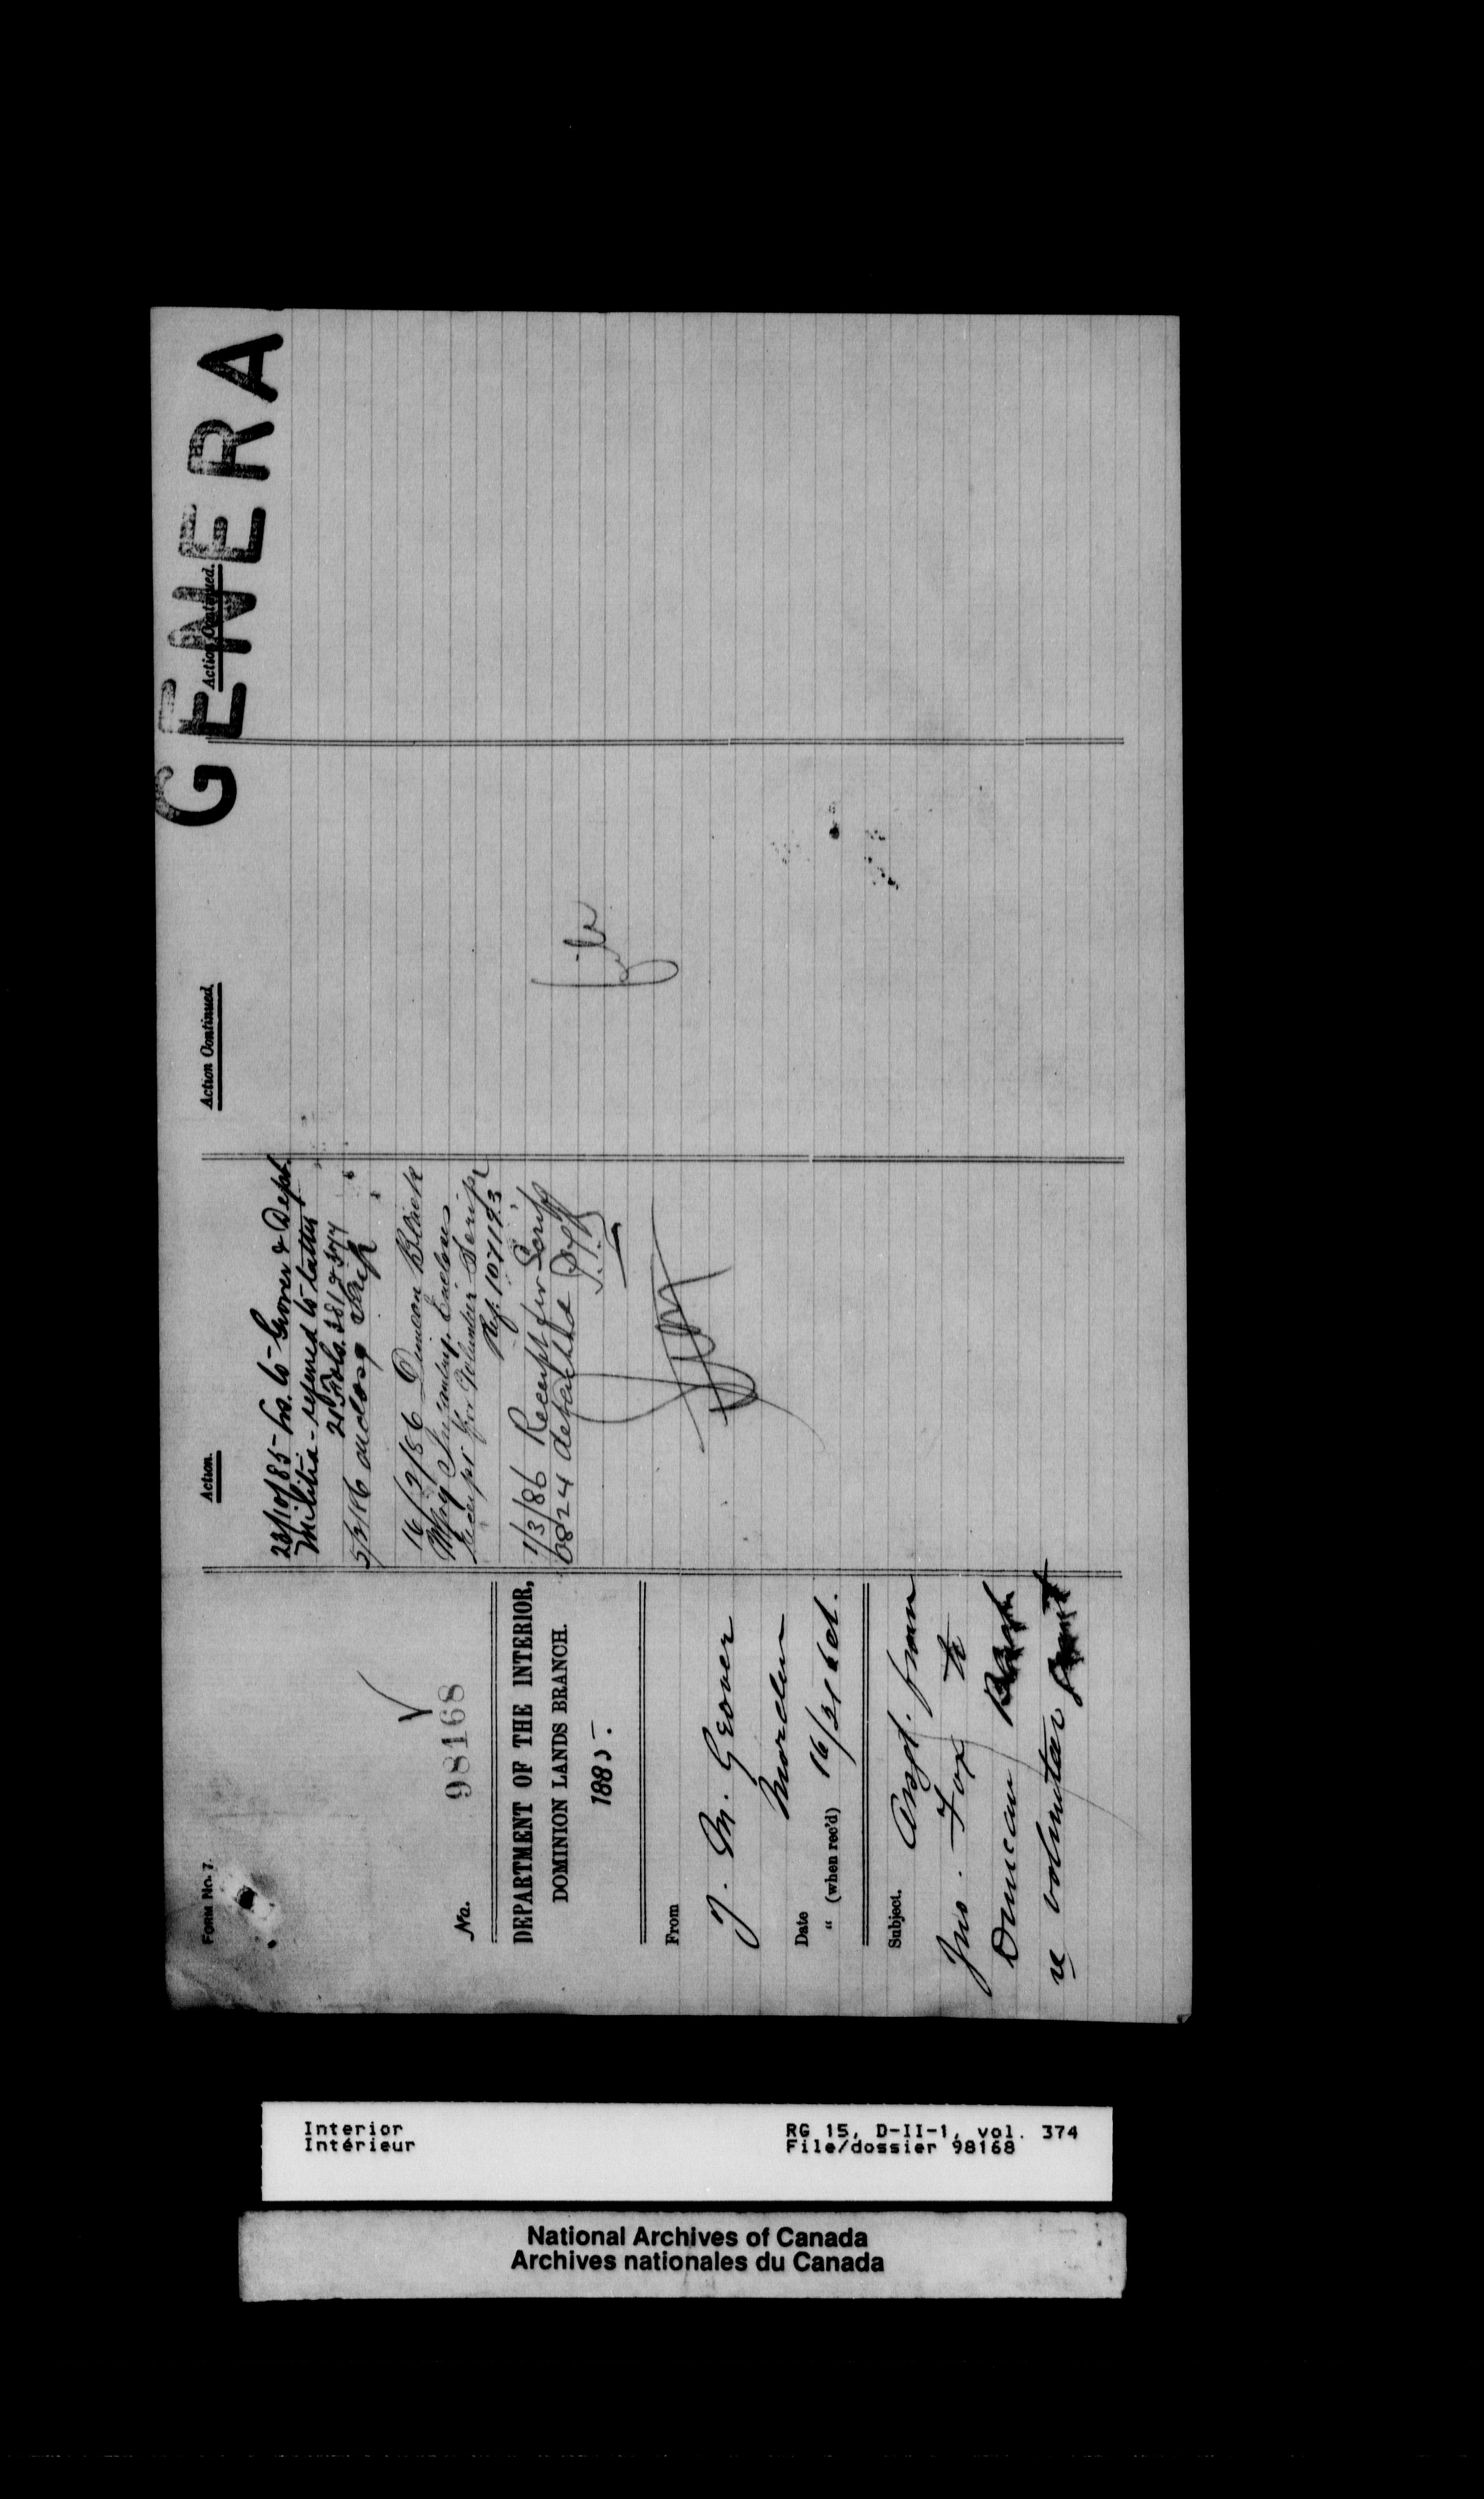 FORM No. 7.
No. 98168
DEPARTMENT OF THE INTERIOR,
DOMINION LANDS BRANCH.
1885.
From
J. M. Grover
Morden
Date
" (when rec'd) 16/21 Oct.
Subject. Assgt. from
Jno. Fox to
Duncan
re volunteer
Action.
23/10/85 - to Grover & Dept.
Militia - referred to latter
Fols. 381 &
5/2/86 enclosg Scrip
16/2/86 Duncan Black
Infantry. Encloses
receipt for Volunteer Scrip
Ref. 107193
1/3/86 Receipt for Scrip
6824 detached
Action Continued
file
Action Continued.
GENERA
Interior
Intérieur
RG 15, D-II-1, vol. 374
File/dossier 98168
National Archives of Canada
Archives nationales du Canada